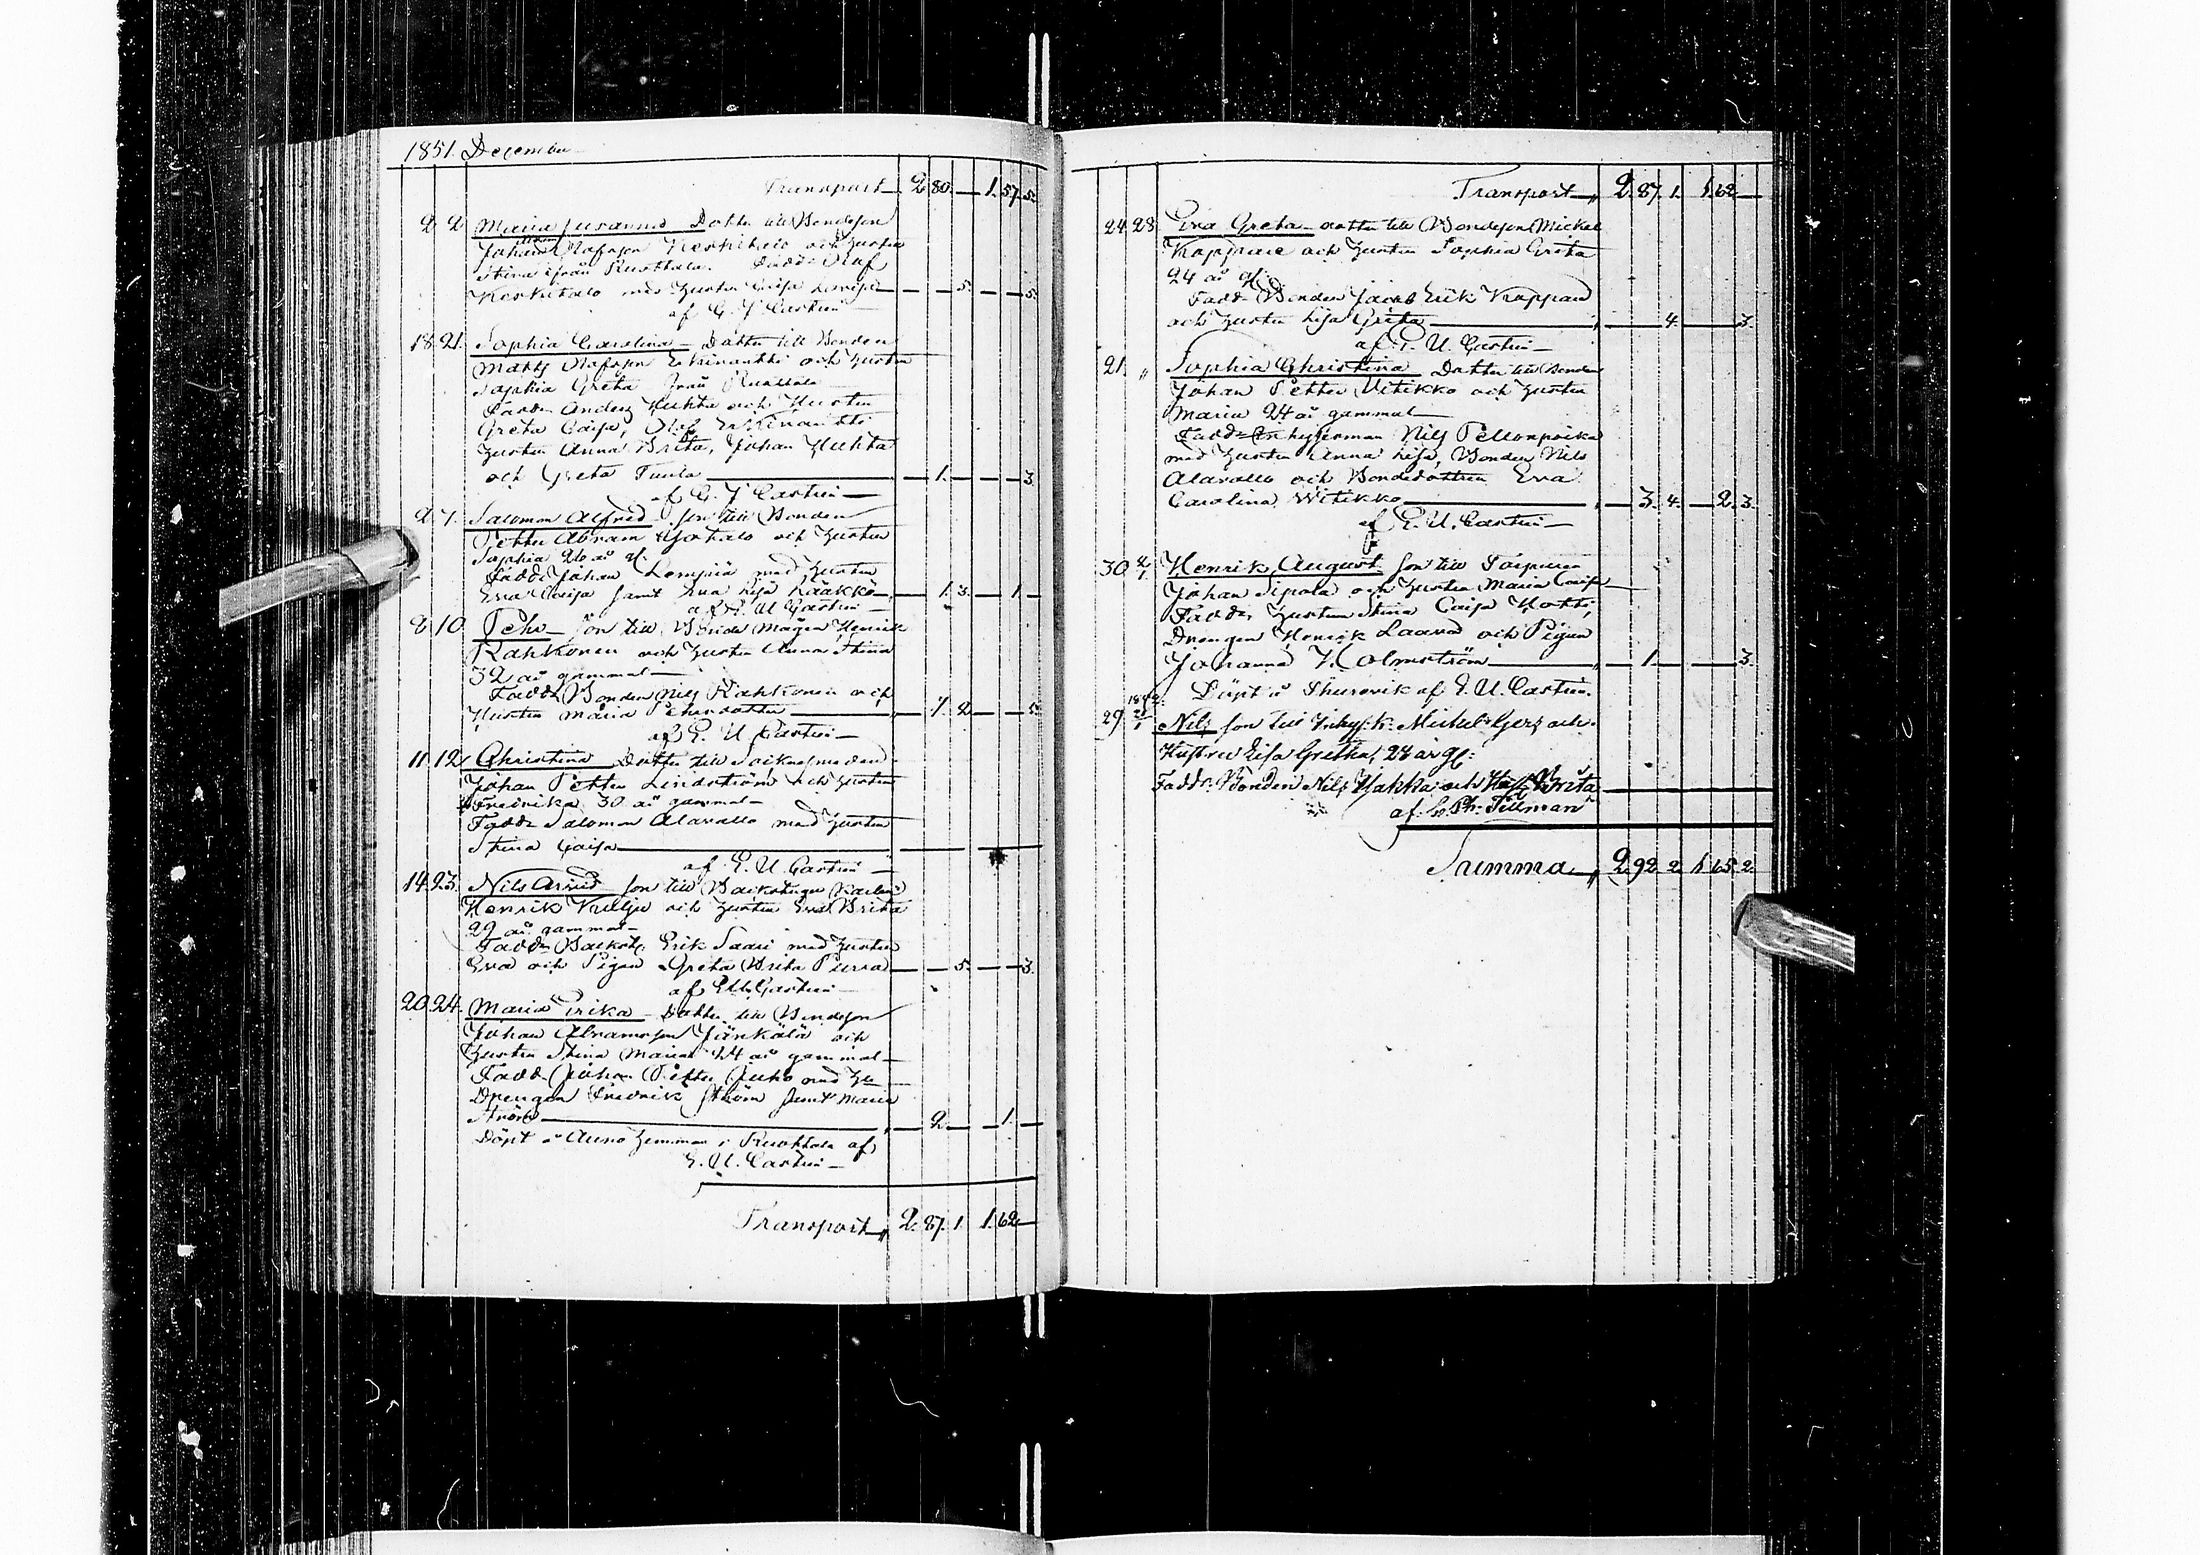 1851. December
Transport 2 80. — 1. 57. 5.
2 2 Maria Susanna Dotter till Bondeson
Johan Olofsson Keskitalo och hustru
Stina ifrån Ruottala. Fadd: Olof
Keskitalo med hustru Caisa Lempiä — 5. — 5.
af G. J. Castrén
18. 21. Sophia Carolina — Dotter till Bonden
Matts Olofsson Erkinantti och hustru
Sophia Greta från Ruottala
Fadd: Anders Huhta och Hustru
Greta Caisa, Olof Erkinantti
hustru Anna Brita, Johan Huhta
och Greta Tuula — 1. — 3.
af G. J. Castrén —
2 7. Salomon Alfred son till Bonden
Petter Abram och hustru
Sophia 26 år gl.
Fadd: Johan Lempiä med hustru
Eva Caisa samt Eva Lisa Kääkkö — 1. 3. — 1. —
af E. U. Castrén —
8. 10. Pehr — son till Henrik
Rahkonen och hustru Anna Stina
32 år gammal —
Fadd: Bonden Nils Rahkonen och
Hustru Maria Pehrsdotter — 1. 2. — 5.
af E. U. Castrén —
11. 12. Christina Dotter till
Johan Petter Lindström och hustru
Fredrika 30 år gammal —
Fadd: Salomon Alavallo med hustru
Stina Caisa
af E. U. Castrén —
14. 23. Nils Arvid son till
Henrik och hustru Eva Brita
29 år gammal —
Fadd: Erik Saari med hustru
Eva och Pigan Greta Brita Purra — 5. — 3.
af E. U. Castrén —
20. 24. Maria Erika — Dotter till Bondeson
Johan Abramsson Jänkälä och
hustru Stina Maria 24 år gammal —
Fadd: Johan Petter Juho med hu
Drengen Fredrik Ström samt Maria
Ström — 2. — 1. —
Döpt å Auno hemman i Ruottala af
E. U. Castrén —
Transport 2. 87. 1. 1. 62 —
Transport 2. 87. 1. 1 62 —
24. 28. Eva Greta — dotter till Bondeson Mickel
och hustru Sophia Greta
24 år gl.
Fadd: Bonden Jacob Erik
och hustru Lisa Greta — 4. — 3.
af E. U. Castrén —
21. " Sophia Christina Dotter till Bonden
Johan Petter Vitikko och hustru
Maria 24 år gammal —
Fadd: Inhysesman Nils Pellonpoika
med hustru Anna Lisa, Bonden Nils
Alavallo och Bondedottren Eva
Carolina Witikko — 3. 4. — 2. 3.
af E. U. Castrén —
30. 2/1 Henrik August son till Torparen
Johan Sipola och hustru Maria Caisa
Fadd: hustrun Stina Caisa
Drengen Henrik Laara och Pigan
Johanna Holmström — 1. — 3.
Döpt å Thurevik af E. U. Castrén.
29 Nils son till Inhys:k: Mickel och
Hustru Lisa Gretha, 28 år gl:
Fadd: Bonden Nils Hakka och Hust: Brita
af Ph: Tillman
Summa 2. 92. 2. 1 65. 2.